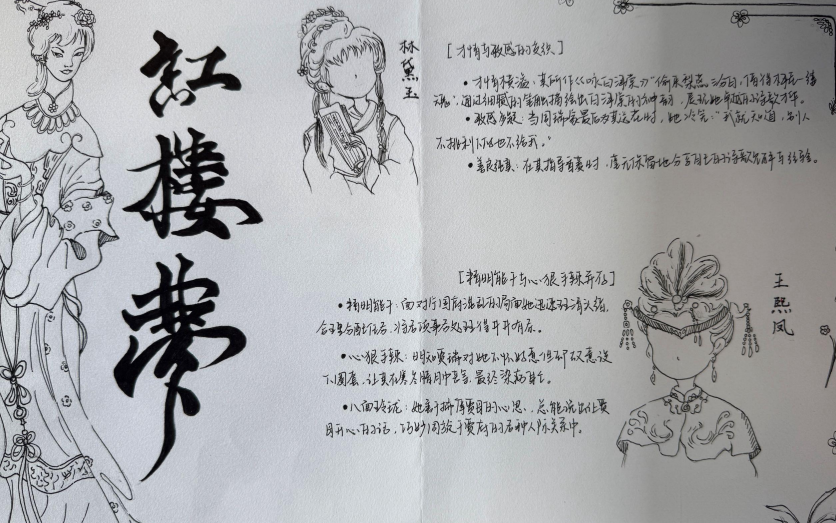 紅樓夢
林黛玉
[才情与敏感的交织]
•才情横溢:其所作《咏白海棠》"偷来梨蕊三分白,借得梅花一缕
魂",通过细腻的笔触描绘出白海棠的神韵,展现她卓越的诗歌才华。
•敏感多疑:当周瑞家最后为其送花时,她冷笑:"我就知道,别人
不挑剩下的也不给我。"
•善良纯真:在其指导香菱时,毫无保留地分享自己的诗歌见解与经验。
[精明能干与心狠手辣并存]
•精明能干:面对宁国府混乱的局面她迅速理清头绪,
合理分配任务,将各项事务处理得井井有条。
•心狠手辣:明知贾瑞对她不怀好意但却故意设
下圈套,让其在寒冬腊月中受苦,最终染病身亡。
•八面玲珑:她善于揣摩贾母的心思,总能说出让贾
母开心的话,巧妙周旋于贾府的各种人际关系中。
王熙凤